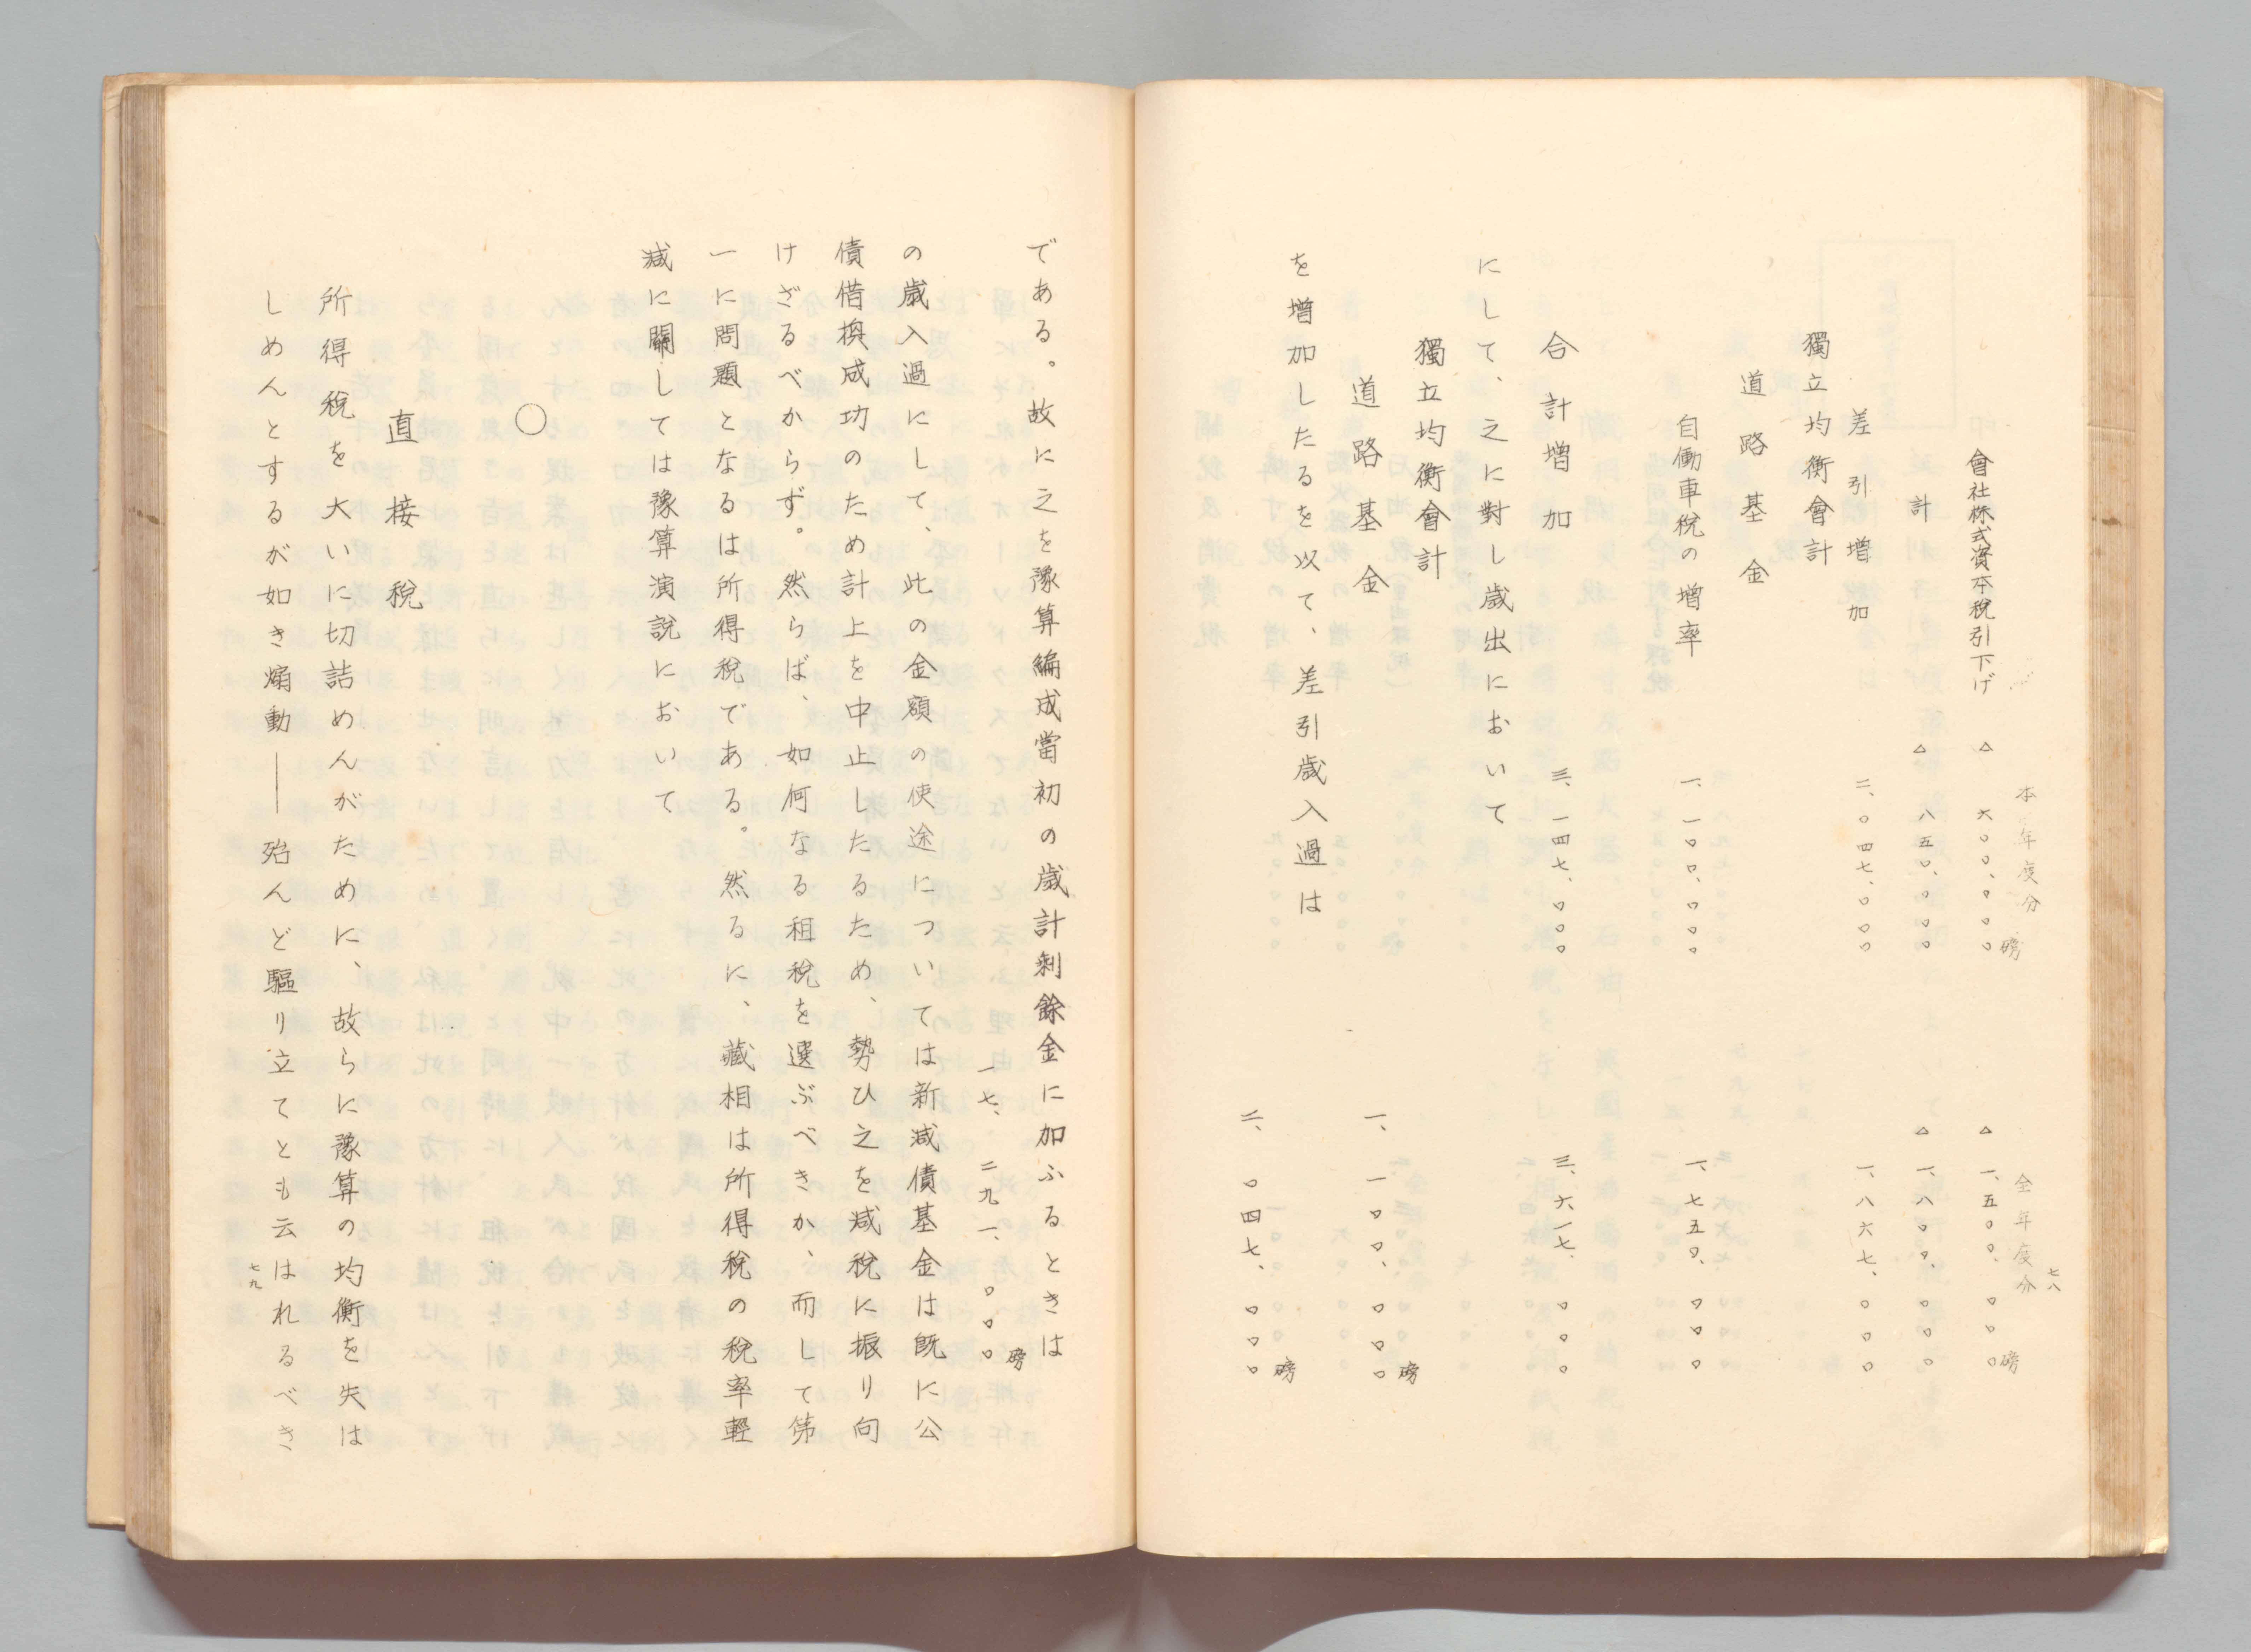 七八
本年度分 全年度分
會社株式資本税引下げ △ 六〇〇、〇〇〇磅 △ 一、五〇〇、〇〇〇磅
計 △ 八五〇、〇〇〇 △ 一、八〇〇、〇〇〇
差引增加 二、〇四七、〇〇〇 一、八六七、〇〇〇
獨立均衡會計
道路基金
自働車稅の增率 一、一〇〇、〇〇〇 一、七五〇、〇〇〇
合計增加 三、一四七、〇〇〇 三、六一七、〇〇〇
にして、之に對し歲出において
獨立均衡會計
道路基金 一、一〇〇、〇〇〇磅
を增加したるを以て、差引歲入過は
二、〇四七、〇〇〇磅
である。故に之を豫算編成當初の歲計剩餘金に加ふるときは
一七、二九一、〇〇〇磅
の歲入過にして、此の金額の使途については新減債基金は既に公
債借換成功のため計上を中止したるため、勢ひ之を減稅に振り向
けざるべからず。然らば、如何なる租稅を選ぶべきか、而して第
一に問題となるは所得稅である。然るに、藏相は所得稅の稅率輕
減に關しては豫算演說において
〇
直接稅
所得稅を大いに切詰めんがために、故らに豫算の均衡を失は
しめんとするが如き煽動――殆んど驅り立てとも云はれるべき
七九